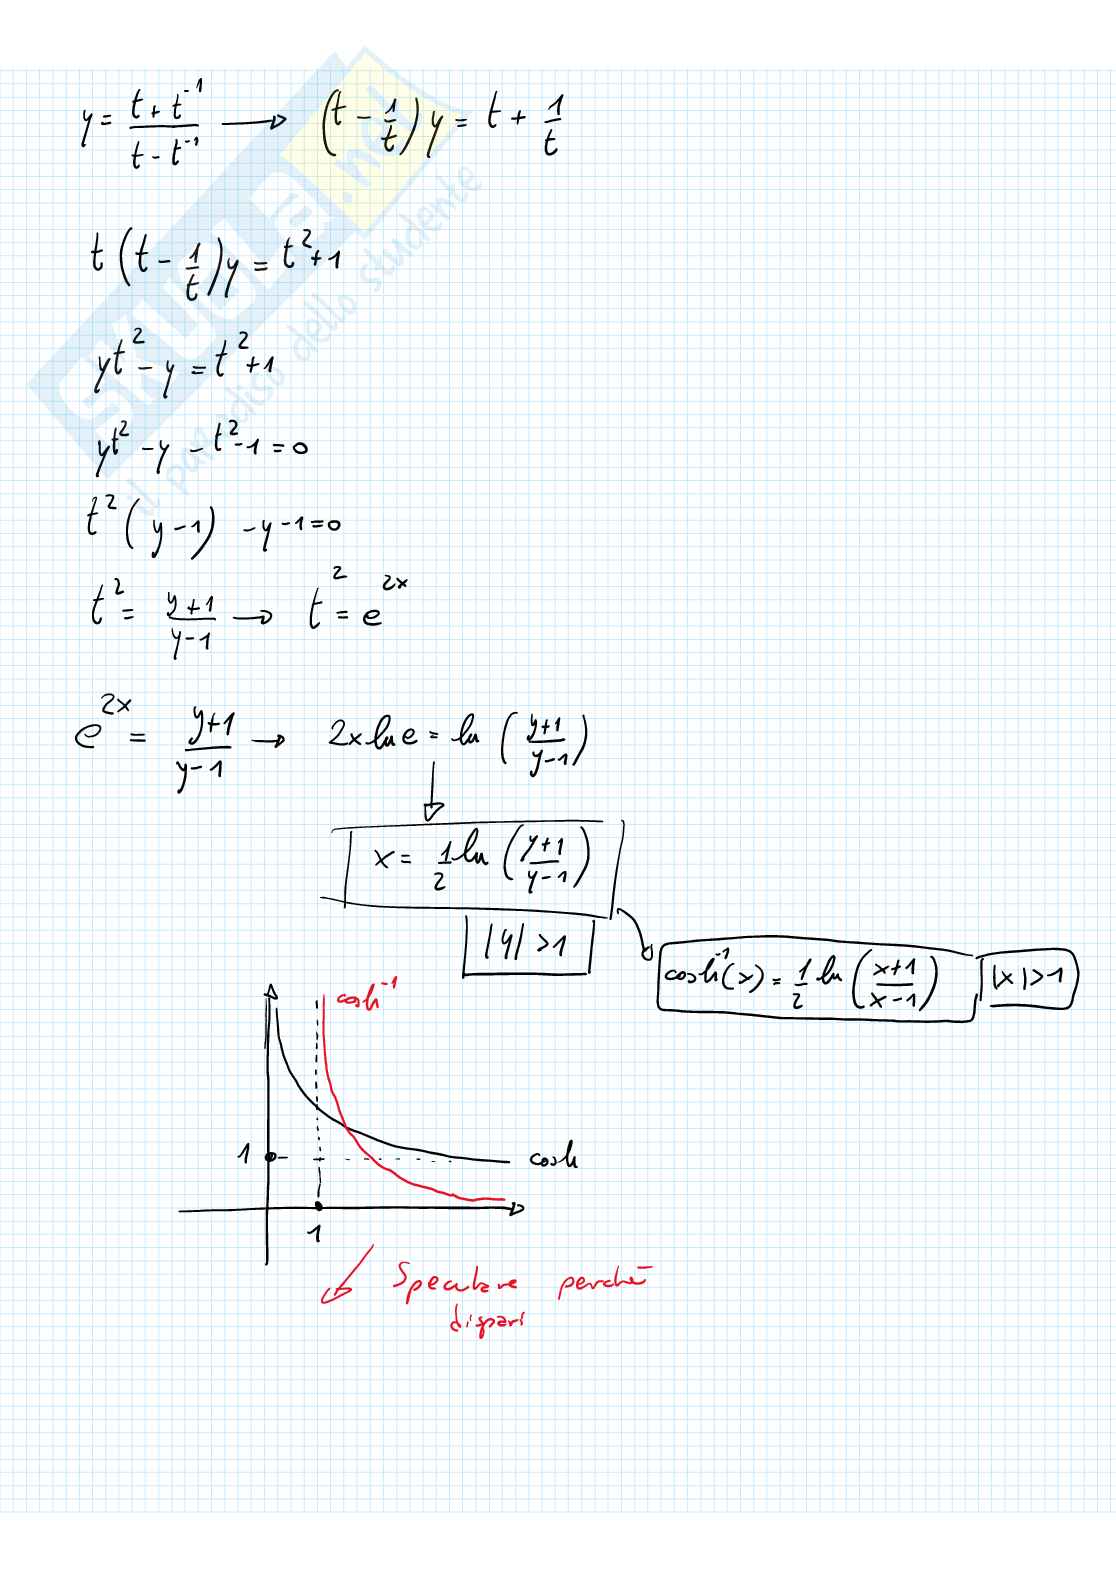 y = (t + t⁻¹)/(t - t⁻¹) → (t - 1/t) y = t + 1/t
t (t - 1/t) y = t² + 1
yt² - y = t² + 1
yt² - y - t² - 1 = 0
t² (y - 1) - y - 1 = 0
t² = (y+1)/(y-1) → t² = e²ˣ
e²ˣ = (y+1)/(y-1) → 2x ln e = ln ((y+1)/(y-1))
x = 1/2 ln ((y+1)/(y-1))
|y| > 1
cosh⁻¹(x) = 1/2 ln ((x+1)/(x-1)) |x| > 1
cosh⁻¹
1
cosh
1
Speculare perché
dispari
SKUOLA.net
il paradiso dello studente